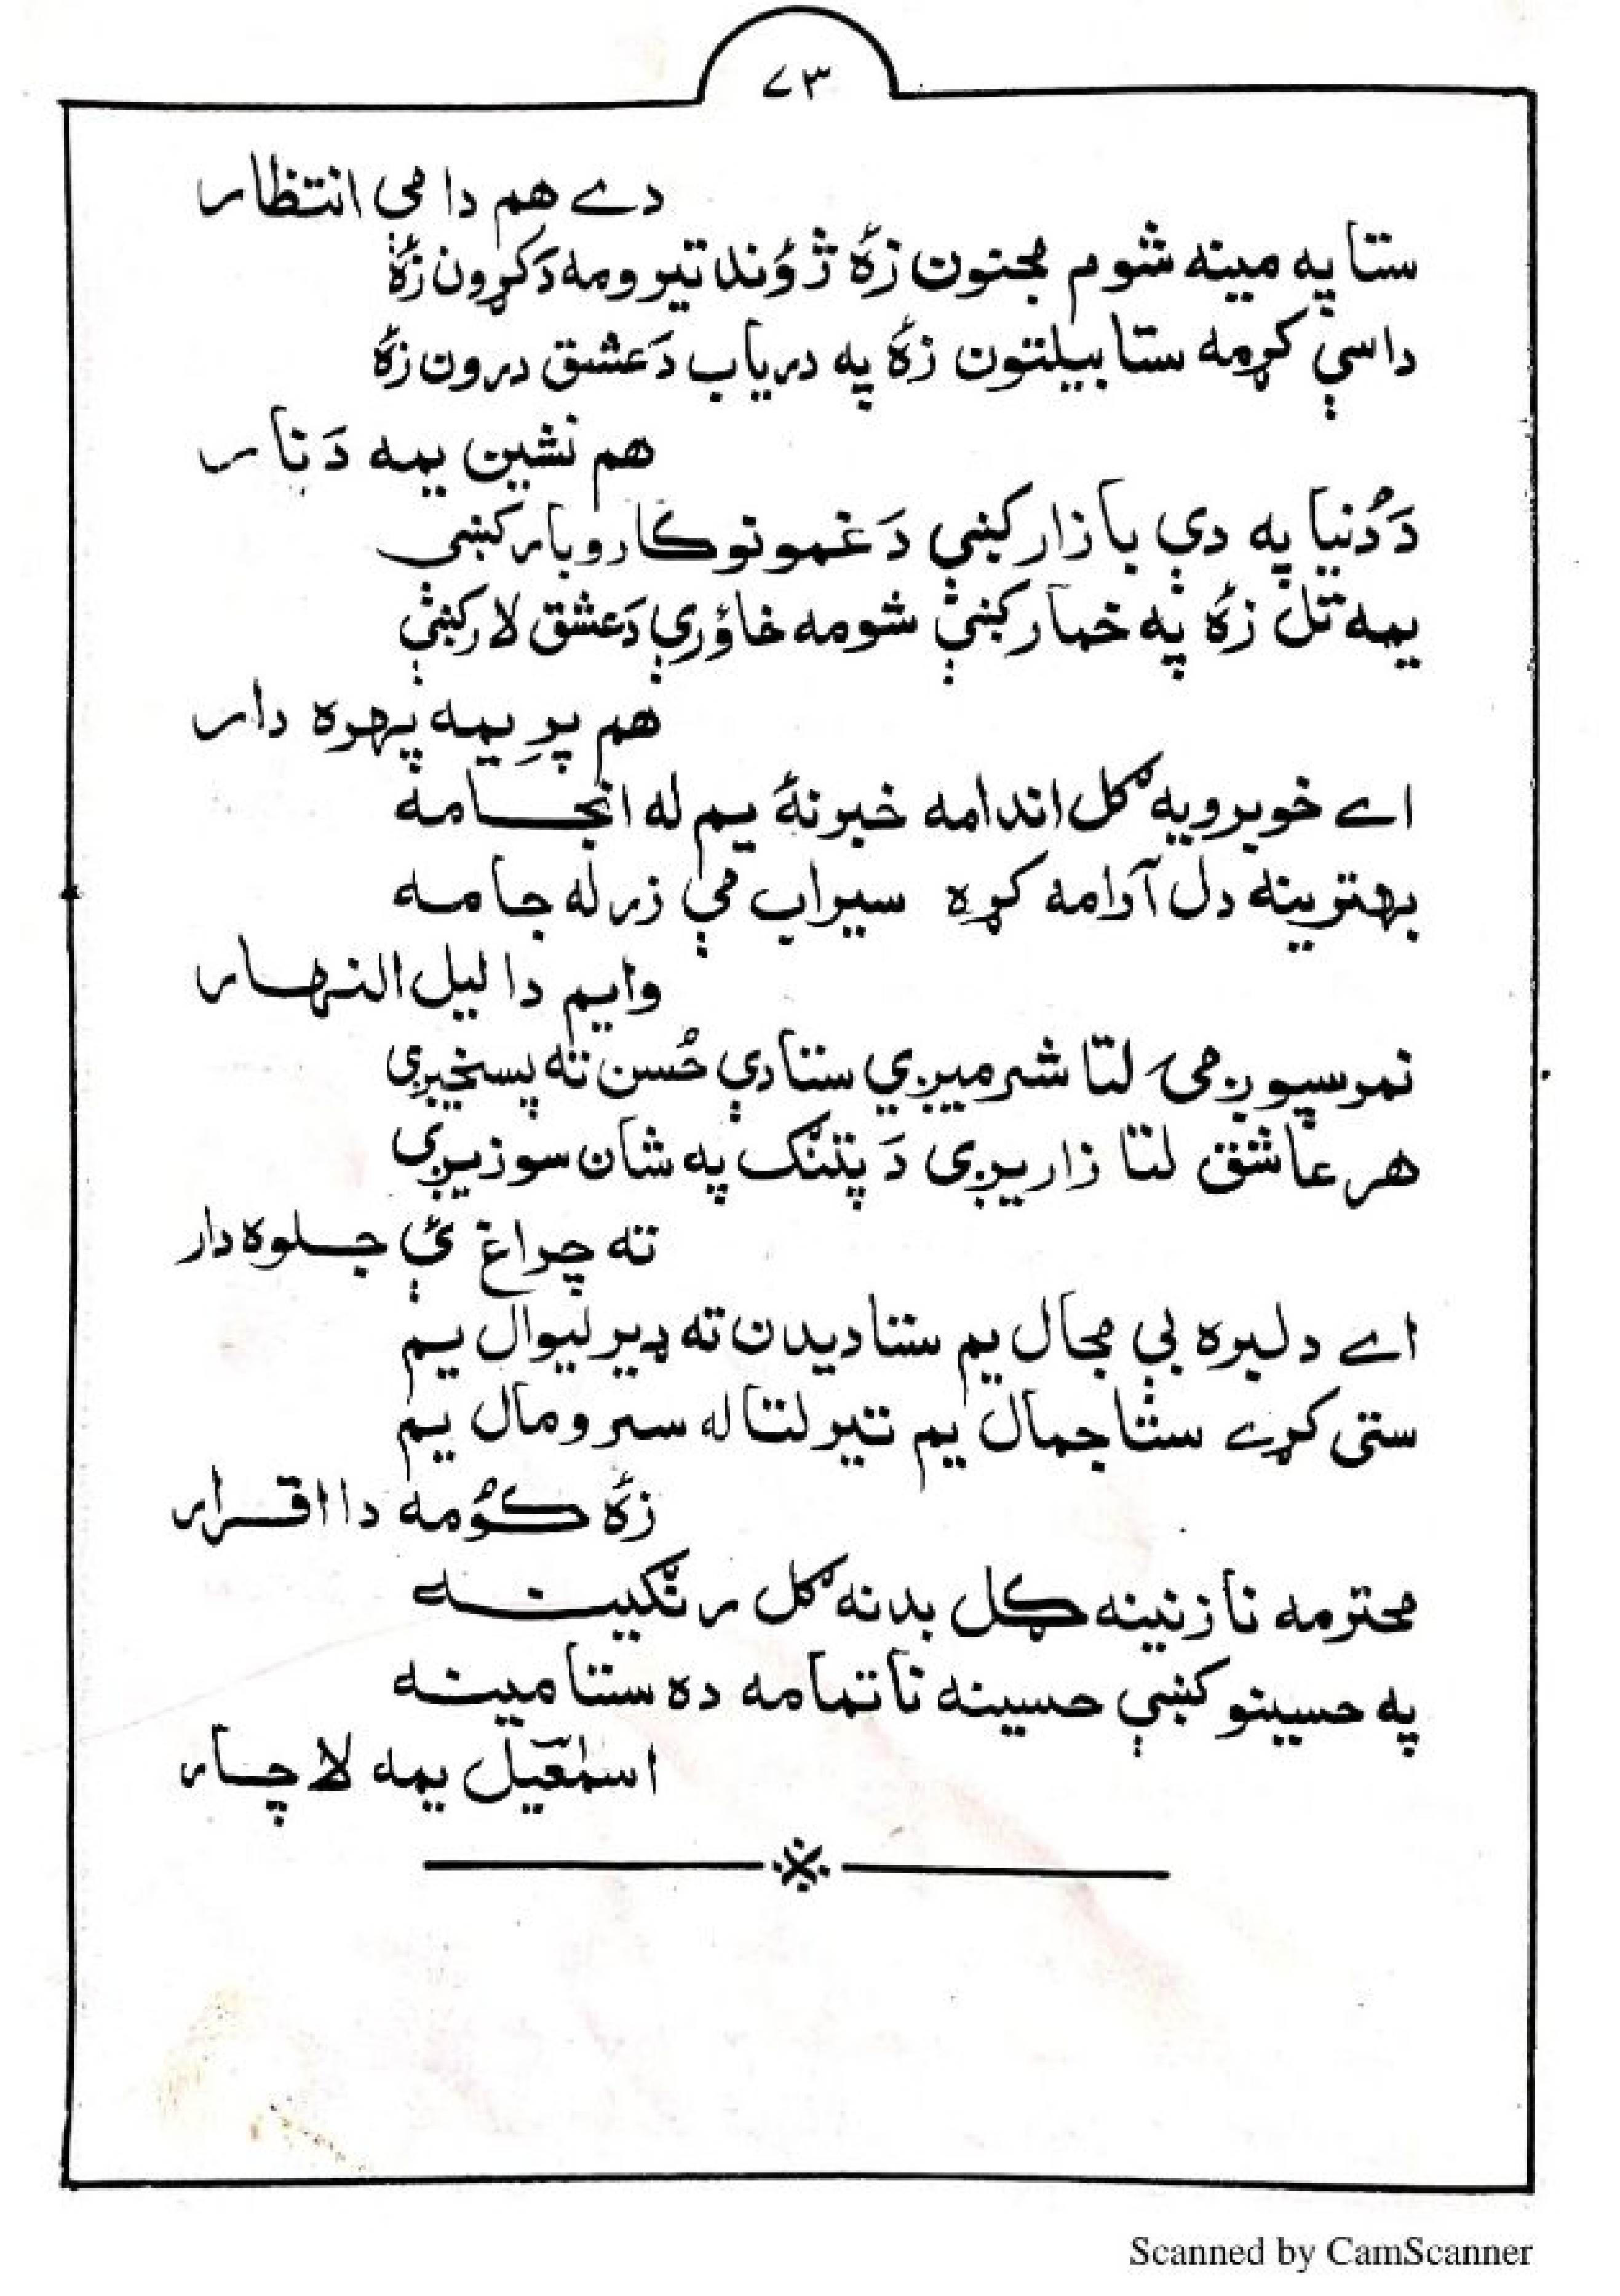 ۷۳
دے هم دا مې انتظار
ستا په مینه شوم مجنون زۀ ژوُند تیرومه دَ کړون زۀ
داسې کړمه ستا بیلتون زۀ په دریاب دَ عشق درون زۀ
هم نشین یمه دَ نار
دَ دُنیا په دې بازار کښې دَ غمونو کاروبار کښې
یمه تل زۀ په خمار کښې شومه خاؤرې دَ عشق لار کښې
هم پرِ یمه پهره دار
اے خوبرویه ګل اندامه خبر نۀ یم له انجامه
بهترینه دل آرامه کړه سیراب مې زر له جامه
وایم دا لیل النهار
نمر سپوږمۍ لتا شرمیږي ستا دې حُسن ته پسخیږي
هر عاشق لتا زاریږی دَ پتنګ په شان سوزیږي
ته چراغ ئې جلوه دار
اے دلبره بې مجال یم ستا دیدن ته ډیر لیوال یم
ستی کړے ستا جمال یم تیر لتا له سر و مال یم
زۀ کوُمه دا اقرار
محترمه نازنینه ګل بدنه ګل رنګینه
په حسینو کښې حسینه ناتمامه ده ستا مینه
اسمٰعیل یمه لاچار
Scanned by CamScanner